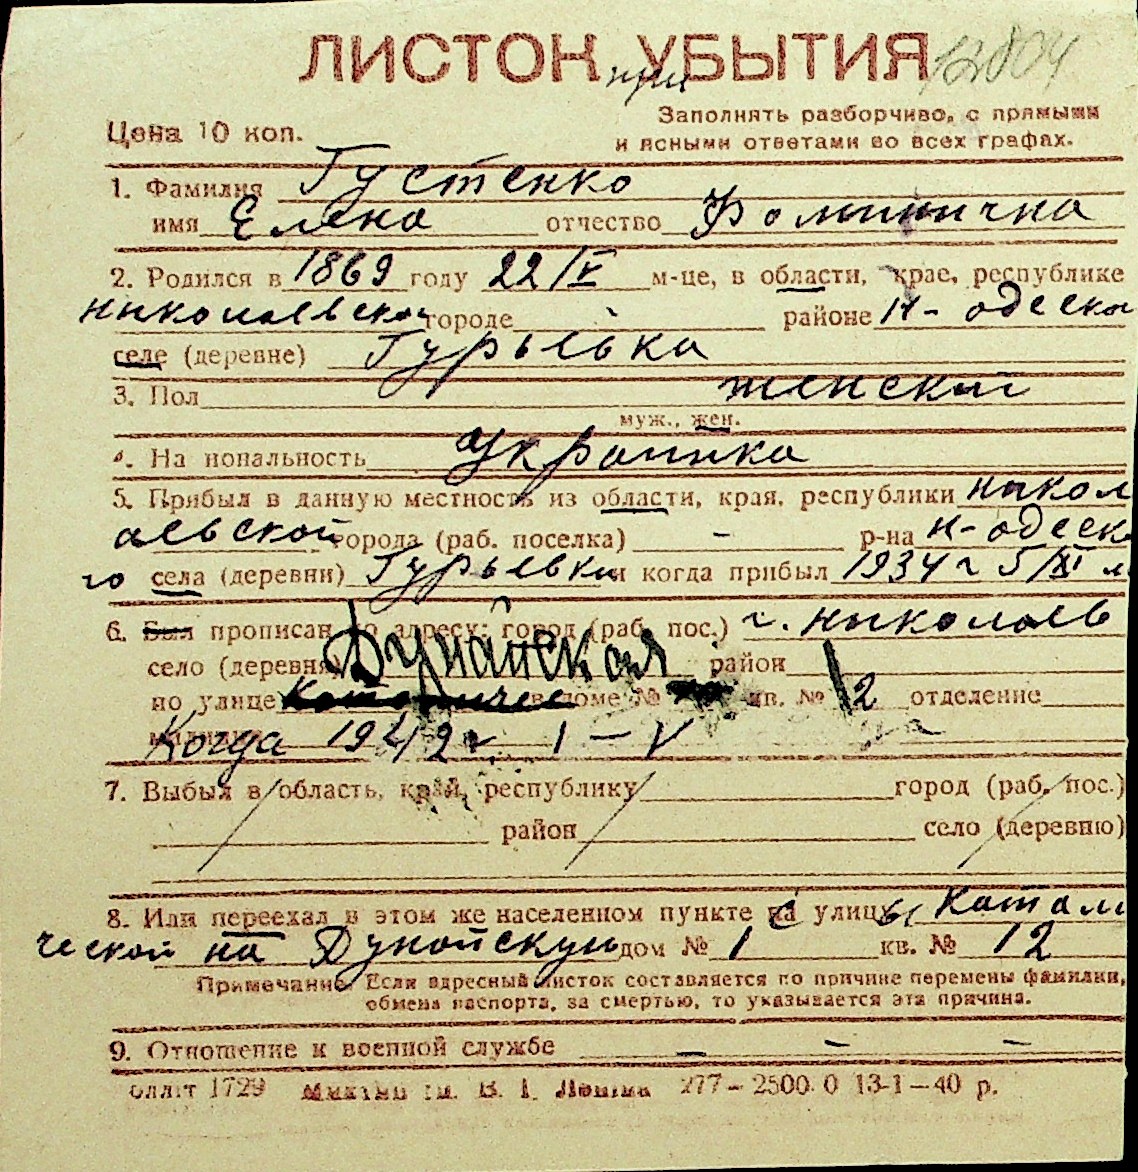 ЛИСТОК УБЫТИЯ 12804
при
Заполнять разборчиво, с прямыми
Цена 10 коп. и ясными ответами во всех графах.
1. Фамилия Густенко
имя Елена отчество Фоминична
2. Родился в 1869 году 22/V м-це, в области, крае, республике
Николаевской городе районе Н-Одеском
селе (деревне) Гурьевка
3. Пол женский
муж., жен.
4. На иональность Украинка
5. Прибыл в данную местность из области, края, республики Никол
аевской города (раб. поселка) - р-на Н-Одеско
го села (деревни) Гурьевка и когда прибыл 1934 г 5/XI м
6. Был прописан по адресу: город (раб. пос.) г. Николаев
село (деревня) Дунайская район
по улице Католичес в доме № 1 кв. № 12 отделение
Когда 1942 г. 1-V
7. Выбыл в область, край, республику город (раб. пос.)
район село (деревню)
8. Или переехал в этом же населенном пункте на с улицы Катали
ческой на Дунайскую дом № 1 кв. № 12
Примечание: Если адресный листок составляется по причине перемены фамилии,
обмена паспорта, за смертью, то указывается эта причина.
9. Отношение к военной службе - - -
1729 В. І. Леніна 277-2500.0 13-1-40 р.